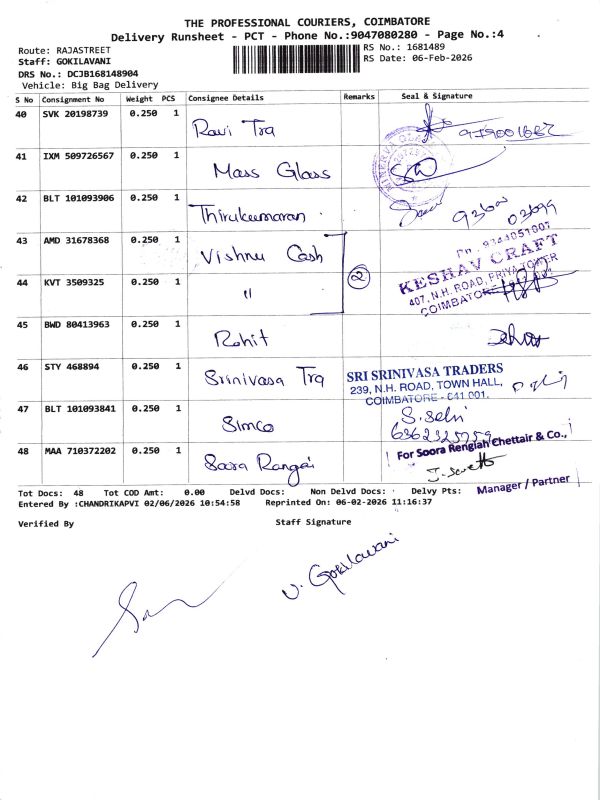 THE PROFESSIONAL COURIERS, COIMBATORE
Delivery Runsheet - PCT - Phone No.:9047080280 - Page No.:4
Route: RAJASTREET
RS No.: 1681489
Staff: GOKILAVANI
RS Date: 06-Feb-2026
DRS No.: DCJB168148904
Vehicle: Big Bag Delivery
S No Consignment No Weight PCS Consignee Details Remarks Seal & Signature
40 SVK 20198739 0.250 1 Ravi Tra
41 IXM 509726567 0.250 1 Mass Glass
42 BLT 101093906 0.250 1 Thirukumaran
43 AMD 31678368 0.250 1 Vishnu Cash
Ph: 9344051007
KESHAV CRAFT
407, N.H. ROAD, PRIYA TOWER
COIMBATORE
44 KVT 3509325 0.250 1 " 2
45 BWD 80413963 0.250 1 Rohit
46 STY 468894 0.250 1 Srinivasa Tra
SRI SRINIVASA TRADERS
239, N.H. ROAD, TOWN HALL,
COIMBATORE - 641 001.
47 BLT 101093841 0.250 1 Simco S. Selvi
6362325759
48 MAA 710372202 0.250 1 Soora Rangai
For Soora Rengiah Chettair & Co.,
Manager / Partner
Tot Docs: 48 Tot COD Amt: 0.00 Delvd Docs: Non Delvd Docs: Delvy Pts:
Entered By :CHANDRIKAPVI 02/06/2026 10:54:58 Reprinted On: 06-02-2026 11:16:37
Verified By Staff Signature
V. Gokilavani